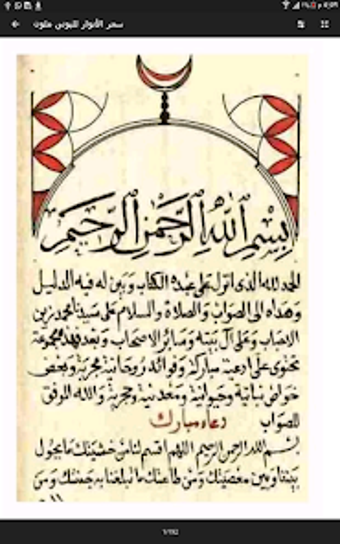 سحر الأنوار للبوني ملون
بسم الله الرحمن الرحيم
الحمد لله الذى انزل على عبده الكتاب وبين له فيه الدليل
وهداه الى الصواب والصلاة والسلام على سيدنا محمد زين
الاحباب وعلى آل بيته وسائر الاصحاب وبعد فهذه مجموعة
تحتوى على ادعية مباركة وفوائد روحانية مجربة وبعض
خواص نباتية وحيوانية ومعدنية وحجرية والله الموفق
للصواب دعاء مبارك
بسم الله الرحمن الرحيم اللهم اقسم لنا من خشيتك ما يحول
بيننا وبين معصيتك ومن طاعتك ما تبلغنا به جنتك ومن
1/192